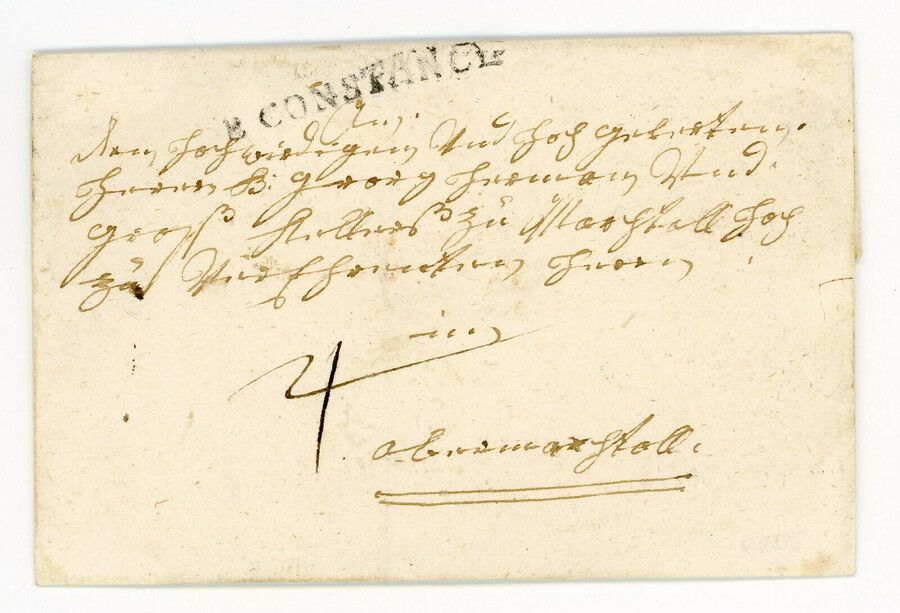 E CONSTANCE
An.
dem hoch wirdigen Und hoch gelerten.
Herrn B: Georg Herman Und
groß Kelleres zu Marchtall hoch
zu Ver Ehrenten Herrn
in
4
obermarchtall.